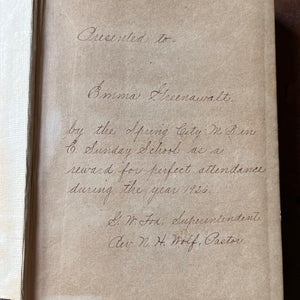 Presented to
Emma Greenawalt
by the Spring City M. E.
E. Sunday School as a
reward for perfect attendance
during the year 192
Superintendent
Rev. N. H. Wolf, Pastor